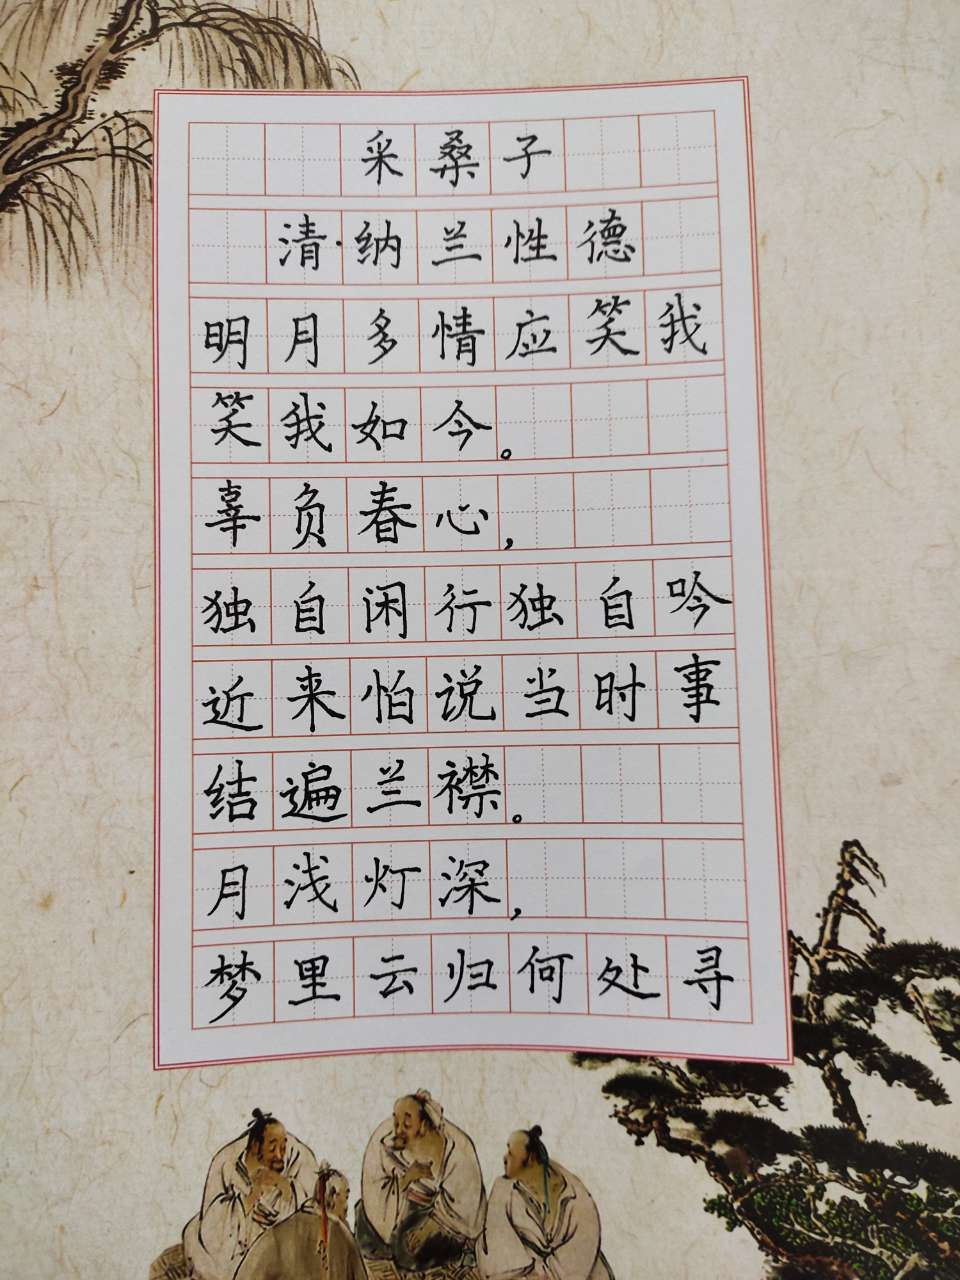 采桑子
清·纳兰性德
明月多情应笑我
笑我如今。
辜负春心,
独自闲行独自吟
近来怕说当时事
结遍兰襟。
月浅灯深,
梦里云归何处寻